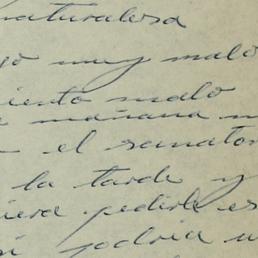 naturalesa
muy malo
iento malo
mañana
el sanator
la tarde y
iera pedirle es
podria